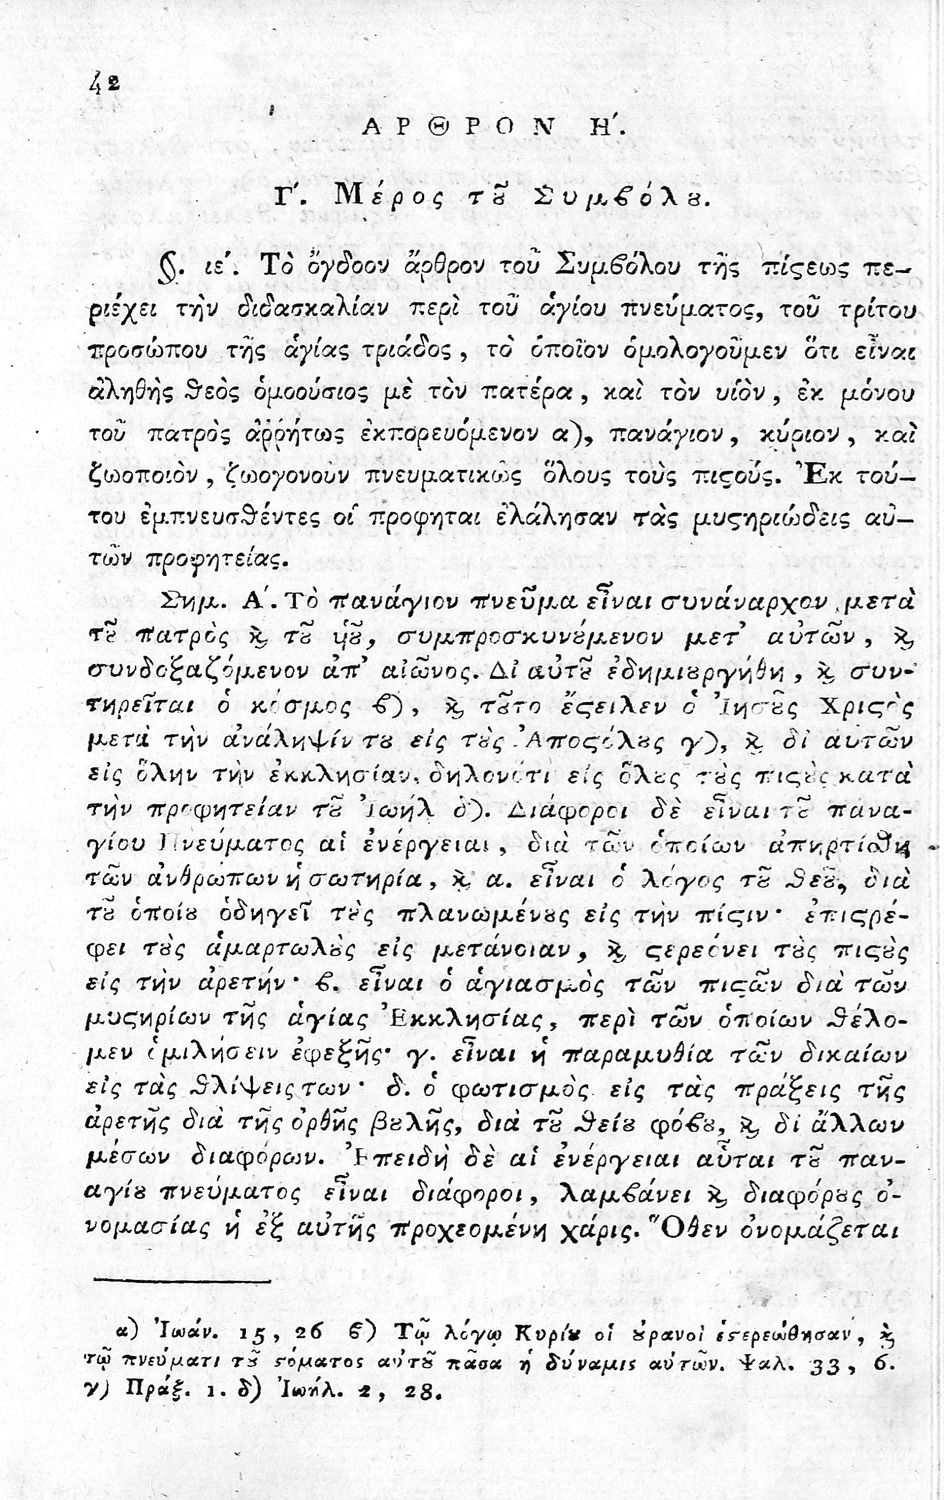 42
ΑΡΘΡΟΝ Η΄.
Γ΄. Μέρος τȣ͂ Συμϐόλȣ.
§. ιε΄. Τὸ ὄγδοον ἄρθρον τοῦ Συμϐόλου τῆς πίϛεως πε-
ριέχει τὴν διδασκαλίαν περὶ τοῦ ἁγίου πνεύματος, τοῦ τρίτου
προσώπου τῆς ἁγίας τριάδος, τὸ ὁποῖον ὁμολογοῦμεν ὅτι εἶναι
ἀληθὴς ϑεὸς ὁμοούσιος μὲ τὸν πατέρα, καὶ τὸν υἱὸν, ἐκ μόνου
τοῦ πατρὸς ἀῤῥήτως ἐκπορευόμενον α), πανάγιον, κύριον, καὶ
ζωοποιὸν, ζωογονοῦν πνευματικῶς ὅλους τοὺς πιϛούς. Ἐκ τού-
του ἐμπνευσϑέντες οἱ προφηται ἐλάλησαν τὰς μυϛηριώδεις αὐ-
τῶν προφητείας.
Σημ. Α΄. Τὸ πανάγιον πνεῦμα εἶναι συνάναρχον μετὰ
τȣ͂ πατρὸς ϗ τȣ͂ ὑȣ͂, συμπροσκυνȣ́μενον μετ' αὐτῶν, ϗ
συνδοξαζόμενον ἀπ' αἰῶνος. Δἰ αὐτȣ͂ ἐδημιȣργήθη, ϗ συν-
τηρεῖται ὁ κόσμος ϐ), ϗ τȣ͂το ἔϛειλεν ὁ Ἰησȣ͂ς Χριϛὸς
μετὰ τὴν ἀνάληψίν τȣ εἰς τȣ̀ς Ἀποϛόλȣς γ), ϗ δἰ αὐτῶν
εἰς ὅλην τὴν ἐκκλησίαν, δηλονότι εἰς ὅλȣς τȣ̀ς πιϛȣ̀ς κατὰ
τὴν προφητείαν τȣ͂ Ἰωήλ δ). Διάφοροι δὲ εἶναι τȣ͂ πανα-
γίου Πνεύματος αἱ ἐνέργειαι, διὰ τῶν ὁποίων ἀπηρτίσϑη
τῶν ἀνθρώπων ἡ σωτηρία, ϗ α. εἶναι ὁ λόγος τȣ͂ ϑεȣ͂, διὰ
τȣ͂ ὁποίȣ ὁδηγεῖ τȣ̀ς πλανωμένȣς εἰς τὴν πίϛιν· ἐπιϛρέ-
φει τȣ̀ς ἁμαρτωλȣ̀ς εἰς μετάνοιαν, ϗ ϛερεόνει τȣ̀ς πιϛȣ̀ς
εἰς τὴν ἀρετήν· ϐ. εἶναι ὁ ἁγιασμὸς τῶν πιϛῶν διὰ τῶν
μυϛηρίων τῆς ἁγίας Ἐκκλησίας, περὶ τῶν ὁποίων ϑέλο-
μεν ὁμιλήσειν ἐφεξῆς· γ. εἶναι ἡ παραμυθία τῶν δικαίων
εἰς τὰς ϑλίψεις των· δ. ὁ φωτισμὸς εἰς τὰς πράξεις τῆς
ἀρετῆς διὰ τῆς ὀρθῆς βȣλῆς, διὰ τȣ͂ ϑείȣ φόϐȣ, ϗ δἰ ἄλλων
μέσων διαφόρων. Ἐπειδὴ δὲ αἱ ἐνέργειαι αὗται τȣ͂ παν-
αγίȣ πνεύματος εἶναι διάφοροι, λαμϐάνει ϗ διαφόρȣς ὀ-
νομασίας ἡ ἐξ αὐτῆς προχεομένη χάρις. Ὅθεν ὀνομάζεται
α) Ἰωάν. 15, 26 ϐ) Τῷ λόγῳ Κυρίȣ οἱ ȣ̓ρανοὶ ἐϛερεώθησαν, ϗ
τῷ πνεύματι τȣ͂ ϛόματος αὐτȣ͂ πᾶσα ἡ δύναμις αὐτῶν. Ψαλ. 33, 6.
γ) Πράξ. 1. δ) Ἰωήλ. 2, 28.